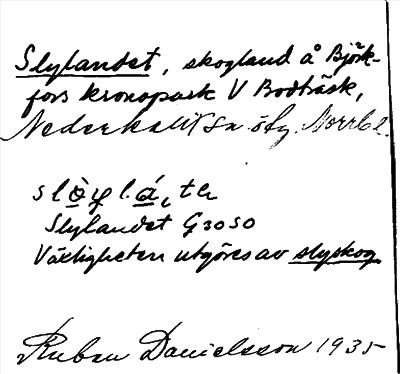 Slylandet, skogland å Björk-
fors kronopark V Bodträsk,
Nederkalix sn. öfg. Norrb l.
Slylandet G3050
Växtligheten utgöres av slyskog
Ruben Danielsson 1935